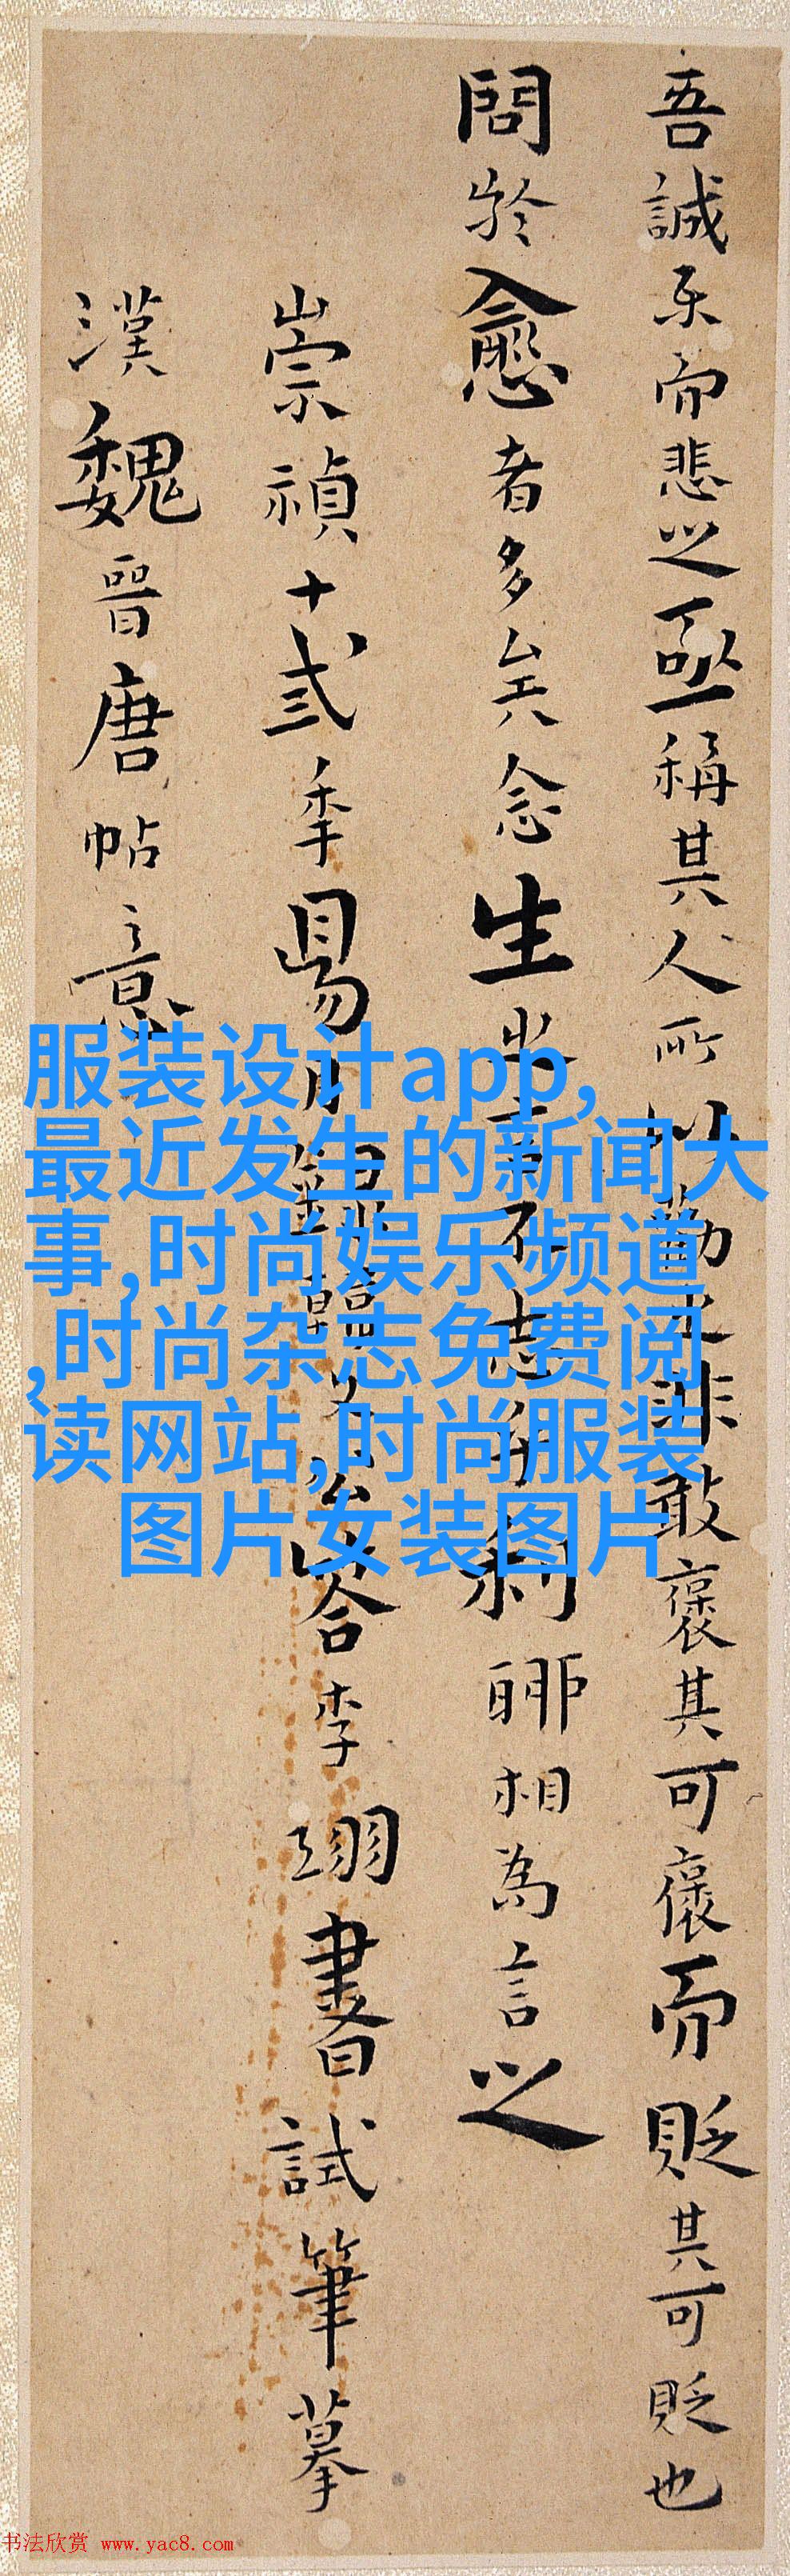 吾誠樂而悲之亟稱其人所以勸之非敢褒其可褒而貶其可貶也
問於愈者多矣念生之言不志於利聊相為言之
崇禎十弍季昜月錄韓文公答李翊書試筆摹
漢魏晉唐帖意
服装设计app,
最近发生的新闻大
事,时尚娱乐频道
,时尚杂志免费阅
读网站,时尚服装
图片女装图片
书法欣赏 www.yac8.com